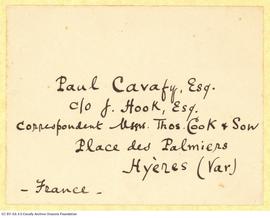 Paul Cavafy, Esq.
c/o J. Hook, Esq.
correspondent Messrs. Thos. Cook & Son
Place des Palmiers
Hyères (Var)
- France -
CC BY-SA 4.0 Cavafy Archive Onassis Foundation